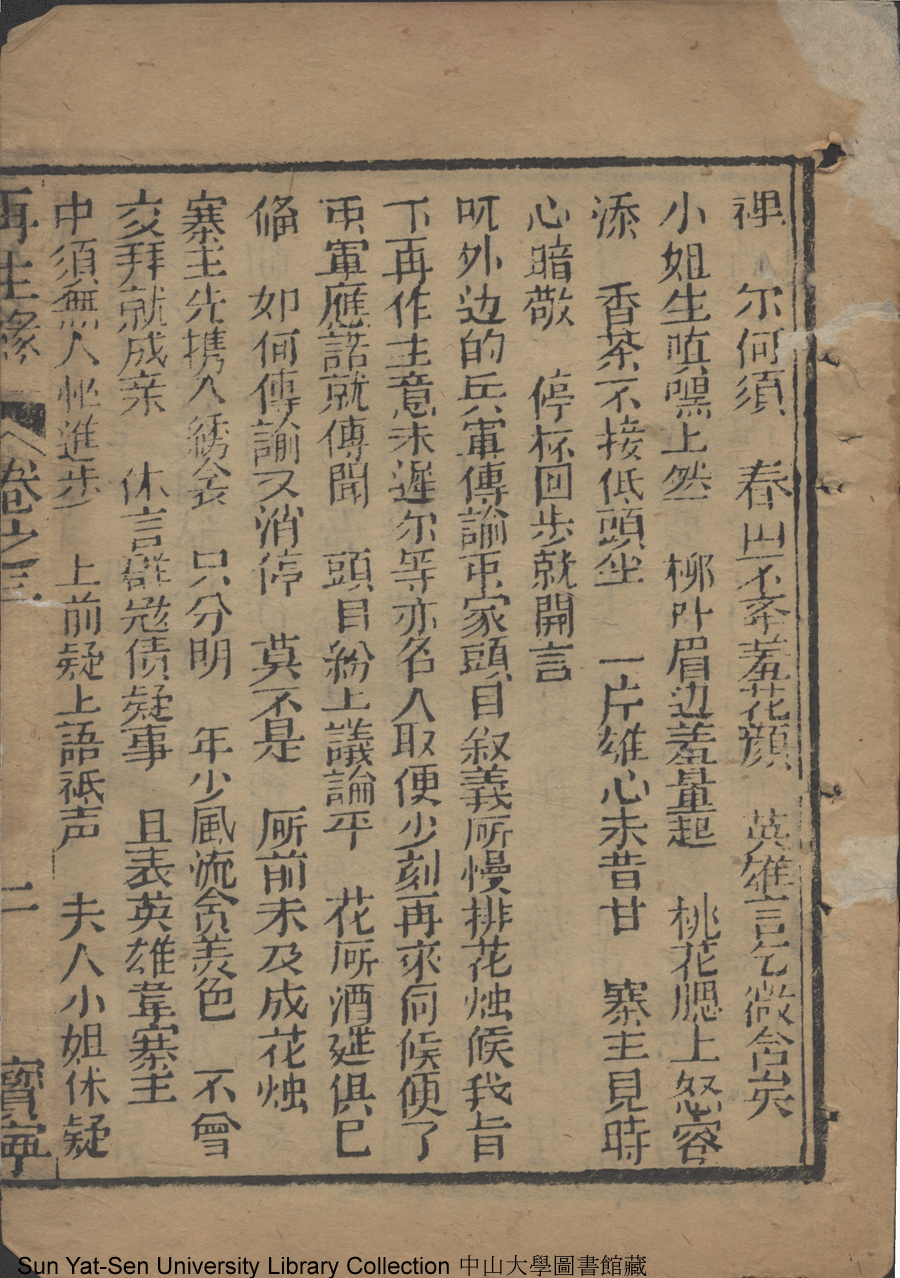 裡 尔何須 春山不牽羞花顔 英雄言乞微含矣
小姐生嗔嘿上然 柳叶眉边羞暈起 桃花腮上怒容
添 香茶不接低頭坐 一片雄心未昔甘 寨主見時
心暗敬 停杯回步就開言
吼外边的兵軍傳諭屯家頭目叙義厛慢排花烛候我旨
下再作主意未遲尔等亦名入取便少刻再來伺候便了
屯軍應諾就傳聞 頭目紛上議論平 花厛酒筵俱已
俻 如何傳諭又消停 莫不是 厛前未及成花烛
寨主先携入綉衾 只分明 年少風流貪美色 不曾
交拜就成亲 休言群冦偵疑事 且表英雄韋寨主
中須無人𢙐進步 上前疑上語祗声 夫人小姐休疑
再生緣 卷之三 二 寳寧